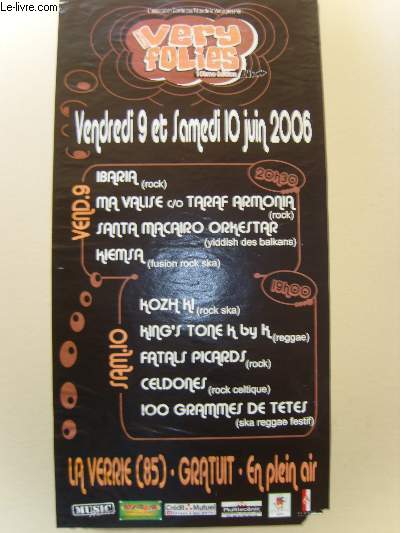 Le-livre.com
L'association Comité des Fêtes de la Verrie présente
Very
FOLies
Vendredi 9 et Samedi 10 juin 2006
VEND.9
20H30
IBARIA (rock)
MA VALISE c/o TARAF ARMONIA
(rock)
SANTA MACAIRO ORKESTAR
(yiddish des balkans)
KIEMSA (fusion rock ska)
SAM.10
19H00
KOZH KI (rock ska)
KING'S TONE K by K (reggae)
FATALS PICARDS (rock)
CELDONES (rock celtique)
100 GRAMMES DE TETES
(ska reggae festif)
LA VERRIE (85) · GRATUIT · En plein air
MUSIC
Crédit Mutuel